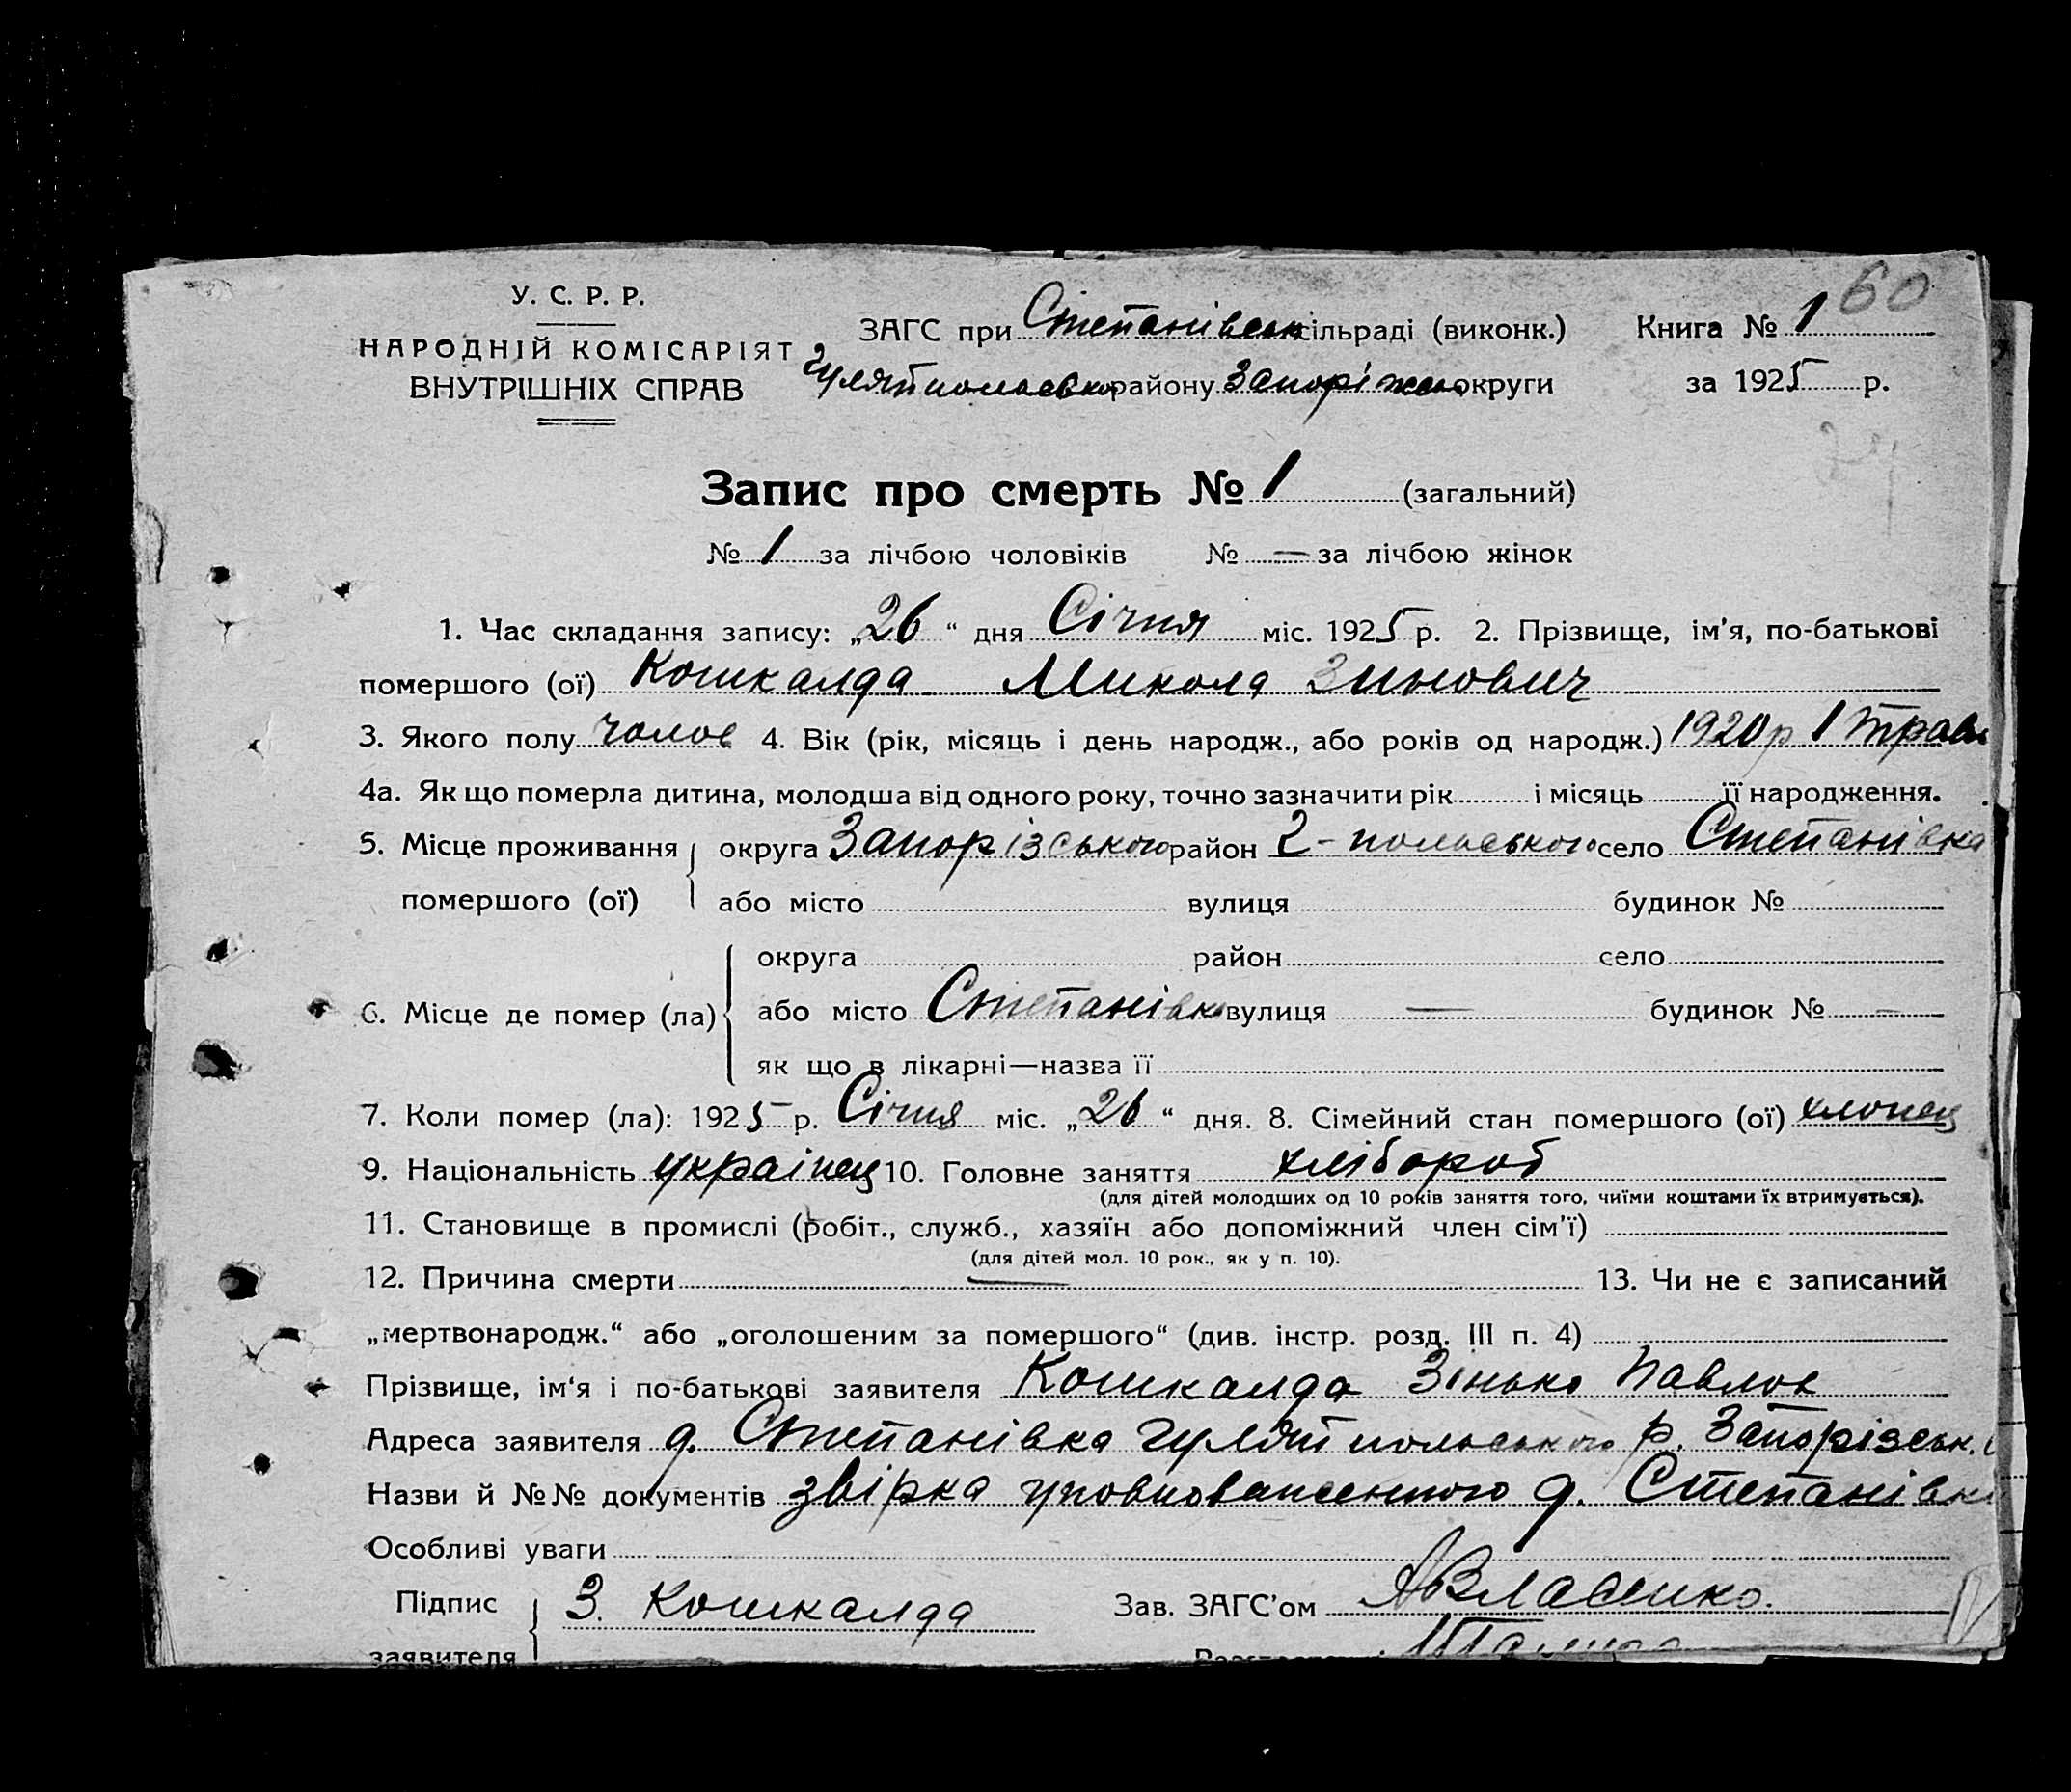 60
У. С. Р. Р.
НАРОДНІЙ КОМІСАРІЯТ
ВНУТРІШНІХ СПРАВ
ЗАГС при Степанівськ сільраді (виконк.) Книга № 1
Гуляйпольсько району Запоріжськ округи за 1925 р.
Запис про смерть № 1 (загальний)
№ 1 за лічбою чоловіків № — за лічбою жінок
1. Час складання запису: „26“ дня Січня міс. 1925 р. 2. Прізвище, ім'я, по-батькові
помершого (ої) Кошкалда Микола Зинович
3. Якого полу чолов 4. Вік (рік, місяць і день народж., або років од народж.) 1920 р 1 Трав
4а. Як що померла дитина, молодша від одного року, точно зазначити рік і місяць її народження.
5. Місце проживання округа Запорізського район Г-польського село Степанівка
помершого (ої) або місто вулиця будинок №
округа район село
6. Місце де помер (ла) або місто Степанівка вулиця — будинок № —
як що в лікарні—назва її
7. Коли помер (ла): 1925 р. Січня міс. „26“ дня. 8. Сімейний стан помершого (ої) хлопец
9. Національність українец 10. Головне заняття хлібороб
(для дітей молодших од 10 років заняття того, чиїми коштами їх втримується).
11. Становище в промислі (робіт., служб., хазяїн або допоміжний член сім'ї)
(для дітей мол. 10 рок., як у п. 10).
12. Причина смерти — 13. Чи не є записаний
„мертвонародж.“ або „оголошеним за помершого“ (див. інстр. розд. III п. 4)
Прізвище, ім'я і по-батькові заявителя Кошкалда Зінько Павлов
Адреса заявителя д. Степанівка Гуляйпольського р. Запорізськ.
Назви й №№ документів звірка уповноваженного д. Степанівки
Особливі уваги
Підпис З. Кошкалда Зав. ЗАГС'ом АВласенко.
заявителя